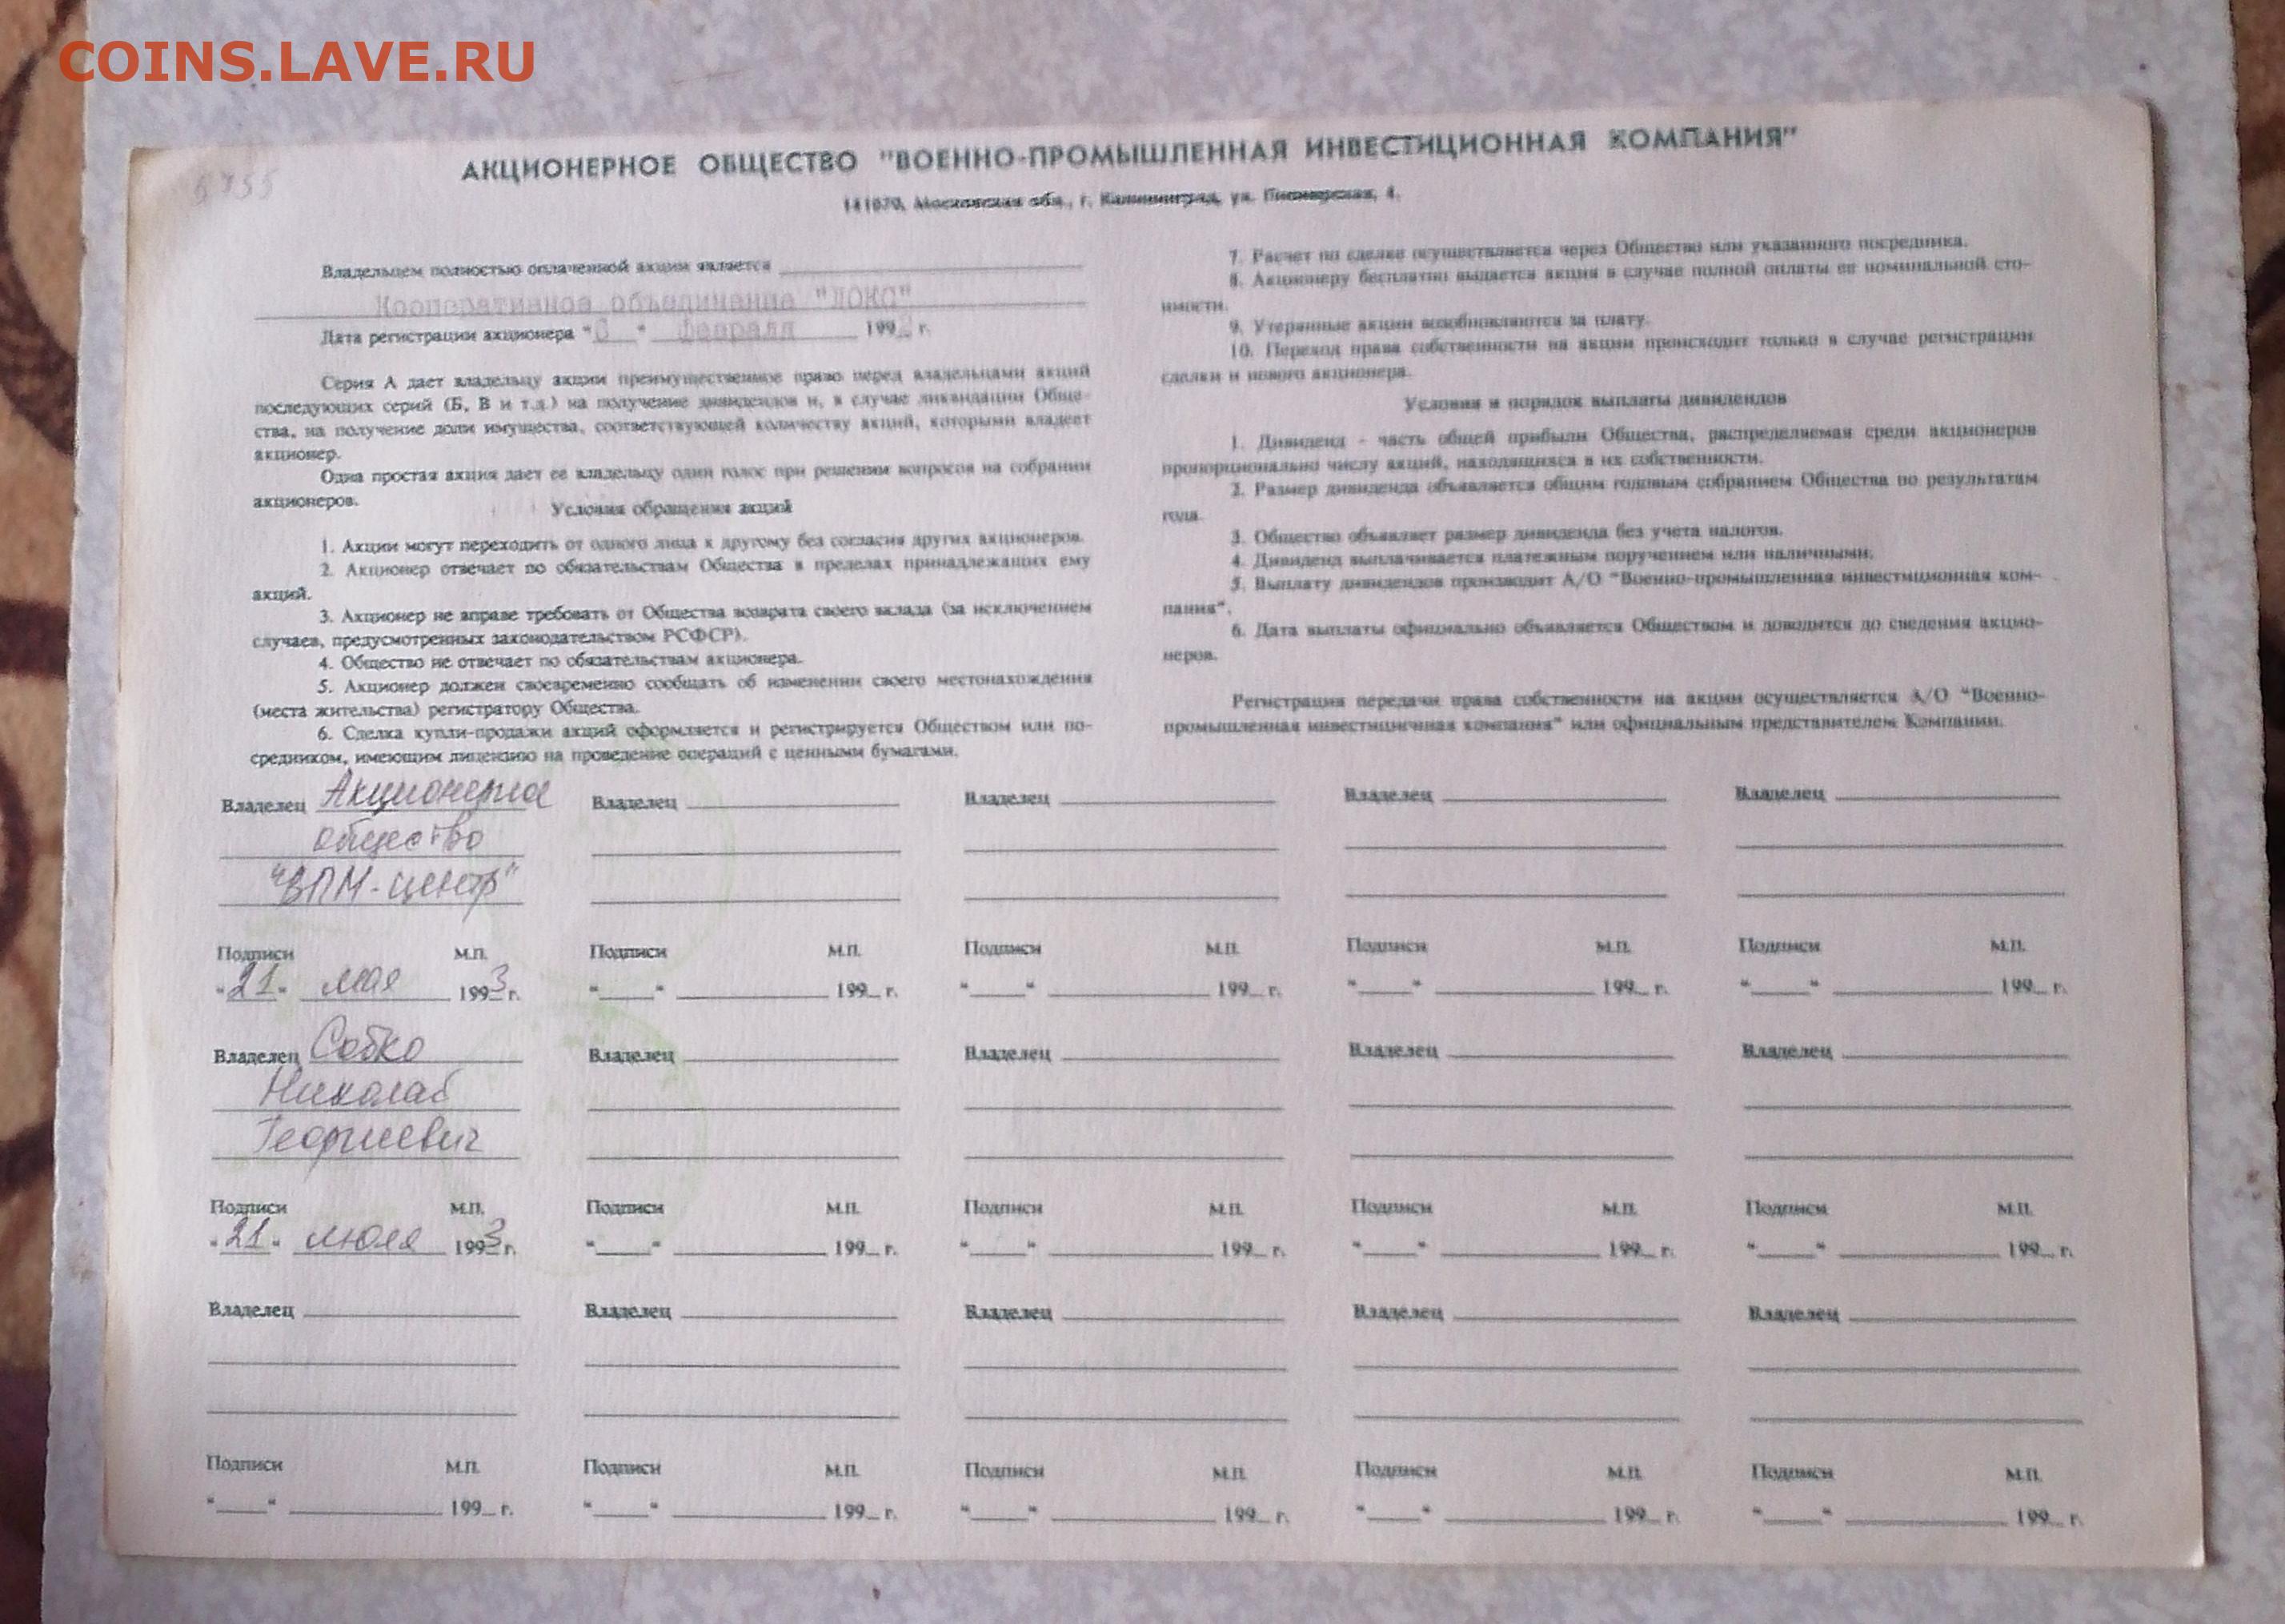 COINS.LAVE.RU
АКЦИОНЕРНОЕ ОБЩЕСТВО "ВОЕННО-ПРОМЫШЛЕННАЯ ИНВЕСТИЦИОННАЯ КОМПАНИЯ"
141070, Московская обл., г. Калининград, ул. Пионерская, 4.
Владельцем полностью оплаченной акции является
Кооперативное объединение "ЛОКС"
Дата регистрации акционера " " февраля 199 г.
Серия А дает владельцу акции преимущественное право перед владельцами акций
последующих серий (Б, В и т.д.) на получение дивидендов и, в случае ликвидации Обще-
ства, на получение доли имущества, соответствующей количеству акций, которыми владеет
акционер.
Одна простая акция дает ее владельцу один голос при решении вопросов на собрании
акционеров.
Условия обращения акций
1. Акции могут переходить от одного лица к другому без согласия других акционеров.
2. Акционер отвечает по обязательствам Общества в пределах принадлежащих ему
акций.
3. Акционер не вправе требовать от Общества возврата своего вклада (за исключением
случаев, предусмотренных законодательством РСФСР).
4. Общество не отвечает по обязательствам акционера.
5. Акционер должен своевременно сообщать об изменении своего местонахождения
(места жительства) регистратору Общества.
6. Сделка купли-продажи акций оформляется и регистрируется Обществом или по-
средником, имеющим лицензию на проведение операций с ценными бумагами.
7. Расчет по сделке осуществляется через Общество или указанного посредника.
8. Акционеру бесплатно выдается акция в случае полной оплаты ее номинальной сто-
имости.
9. Утерянные акции возобновляются за плату.
10. Переход права собственности на акции происходит только в случае регистрации
сделки и нового акционера.
Условия и порядок выплаты дивидендов
1. Дивиденд - часть общей прибыли Общества, распределяемая среди акционеров
пропорционально числу акций, находящихся в их собственности.
2. Размер дивиденда объявляется общим годовым собранием Общества по результатам
года.
3. Общество объявляет размер дивиденда без учета налогов.
4. Дивиденд выплачивается платежным поручением или наличными.
5. Выплату дивидендов производит А/О "Военно-промышленная инвестиционная ком-
пания".
6. Дата выплаты официально объявляется Обществом и доводится до сведения акцио-
неров.
Регистрация передачи права собственности на акции осуществляется А/О "Военно-
промышленная инвестиционная компания" или официальным представителем Компании.
Владелец Акционерное Владелец Владелец Владелец Владелец
общество
"ВПМ-центр"
Подписи М.П. Подписи М.П. Подписи М.П. Подписи М.П. Подписи М.П.
"21" мая 1993 г. " " 199 г. " " 199 г. " " 199 г. " " 199 г.
Владелец Собко Владелец Владелец Владелец Владелец
Николай
Георгиевич
Подписи М.П. Подписи М.П. Подписи М.П. Подписи М.П. Подписи М.П.
"21" июля 1993 г. " " 199 г. " " 199 г. " " 199 г. " " 199 г.
Владелец Владелец Владелец Владелец Владелец
Подписи М.П. Подписи М.П. Подписи М.П. Подписи М.П. Подписи М.П.
" " 199 г. " " 199 г. " " 199 г. " " 199 г. " " 199 г.